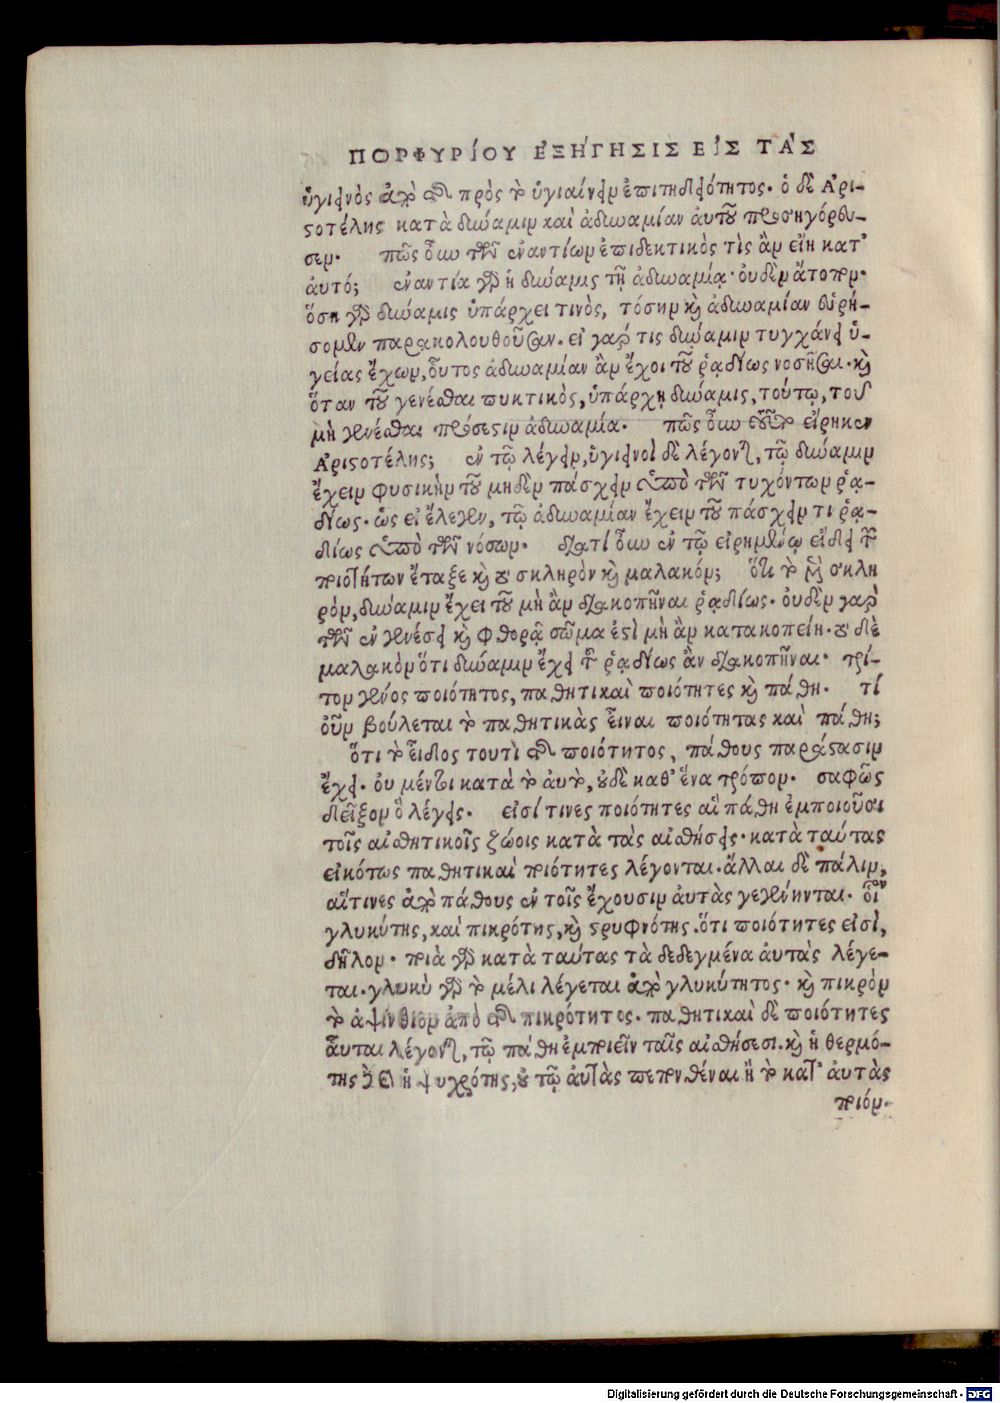 ΠΟΡΦΥΡΙΟΥ ΕΞΗΓΗΣΙΣ ΕΙΣ ΤΑΣ
ὑγιεινὸς ἀπὸ τῆς πρὸς τὸ ὑγιαίνειν ἐπιτηδειότητος. ὁ δὲ Ἀρι-
στοτέλης κατὰ δύναμιν καὶ ἀδυναμίαν αὐτοῦ προσηγόρευ-
σεν. πῶς οὖν τῶν ἐναντίων ἐπιδεκτικὸς τὶς ἂν εἴη κατ'
αὐτό; ἐναντία γὰρ ἡ δύναμις τῇ ἀδυναμίᾳ. οὐδὲν ἄτοπον.
ὅση γὰρ δύναμις ὑπάρχει τινὸς, τόσην καὶ ἀδυναμίαν εὑρή-
σομεν παρακολουθοῦσαν. εἰ γάρ τις δύναμιν τυγχάνει ὑ-
γείας ἔχων, οὗτος ἀδυναμίαν ἂν ἔχοι τοῦ ῥᾳδίως νοσῆσαι. καὶ
ὅταν τοῦ γενέσθαι πυκτικὸς, ὑπάρχῃ δύναμις, τούτῳ, τοῦ
μὴ γενέσθαι πρόσεστιν ἀδυναμία. πῶς οὖν τοῦτο εἴρηκεν
Ἀριστοτέλης; ἐν τῷ λέγειν, ὑγιεινοὶ δὲ λέγονται, τῷ δύναμιν
ἔχειν φυσικὴν τοῦ μηδὲν πάσχειν ὑπὸ τῶν τυχόντων ῥᾳ-
δίως. ὡς εἰ ἔλεγεν, τῷ ἀδυναμίαν ἔχειν τοῦ πάσχειν τι ῥᾳ-
δίως ὑπὸ τῶν νόσων. διατί οὖν ἐν τῷ εἰρημένῳ εἴδει τῶν
ποιοτήτων ἔταξε καὶ τὸ σκληρὸν καὶ μαλακόν; ὅτι τὸ μὲν σκλη
ρὸν, δύναμιν ἔχει τοῦ μὴ ἂν διακοπῆναι ῥᾳδίως. οὐδὲν γὰρ
τῶν ἐν γενέσει καὶ φθορᾷ σῶμα ἐστὶ μὴ ἂν κατακοπείη. τὸ δὲ
μαλακὸν ὅτι δύναμιν ἔχει τοῦ ῥᾳδίως ἂν διακοπῆναι. τρί-
τον γένος ποιότητος, παθητικαὶ ποιότητες καὶ πάθη. τί
οὖν βούλεται τὸ παθητικὰς εἶναι ποιότητας καὶ πάθη;
ὅτι τὸ εἶδος τουτὶ τῆς ποιότητος, πάθους παράστασιν
ἔχει. οὐ μέντοι κατὰ τὸ αὐτὸ, οὐδὲ καθ' ἕνα τρόπον. σαφῶς
δεῖξον ὃ λέγεις. εἰσί τινες ποιότητες αἳ πάθη ἐμποιοῦσι
τοῖς αἰσθητικοῖς ζώοις κατὰ τὰς αἰσθήσεις. κατὰ ταύτας
εἰκότως παθητικαὶ ποιότητες λέγονται. ἄλλαι δὲ πάλιν,
αἵτινες ἀπὸ πάθους ἐν τοῖς ἔχουσιν αὐτὰς γεγένηνται. οἷον
γλυκύτης, καὶ πικρότης, καὶ στρυφνότης. ὅτι ποιότητες εἰσὶ,
δῆλον. ποιὰ γὰρ κατὰ ταύτας τὰ δεδεγμένα αὐτὰς λέγε-
ται. γλυκὺ γὰρ τὸ μέλι λέγεται ἀπὸ γλυκύτητος. καὶ πικρὸν
τὸ ἀψίνθιον ἀπὸ τῆς πικρότητος. παθητικαὶ δὲ ποιότητες
αὗται λέγονται, τῷ πάθη ἐμποιεῖν ταῖς αἰσθήσεσι. καὶ ἡ θερμό-
της καὶ ἡ ψυχρότης, οὐ τῷ αὐτὰς πεπονθέναι ἢ τὸ κατ' αὐτὰς
ποιόν.
Digitalisierung gefördert durch die Deutsche Forschungsgemeinschaft - DFG